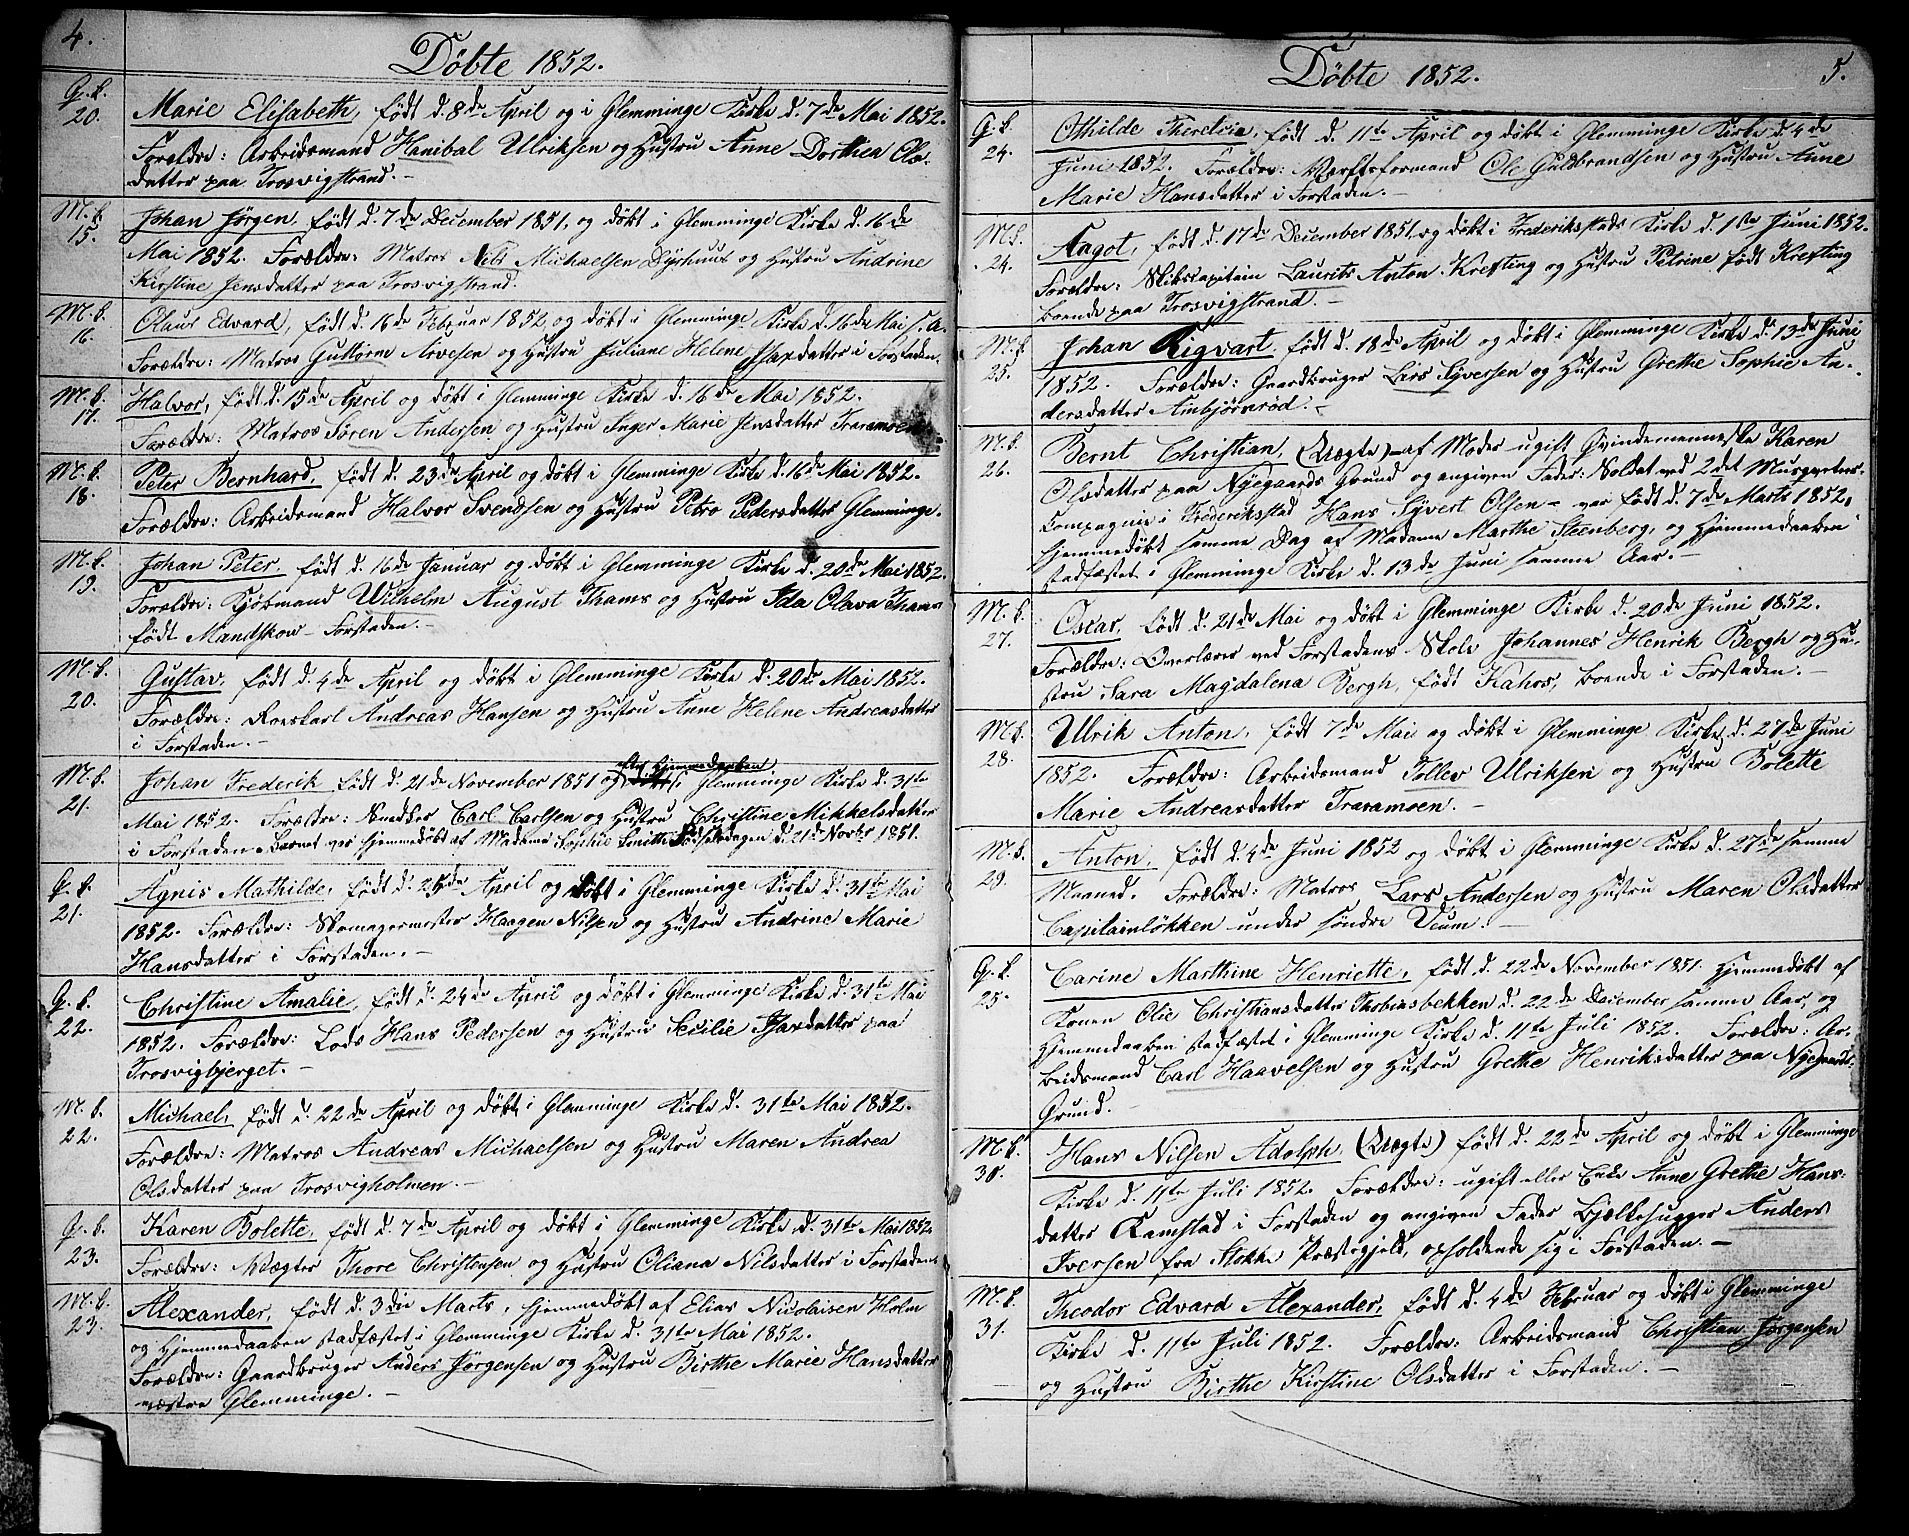 4.
Döbte 1852.
G. k. 20.
Marie Elisabeth, född d. 8de April og i Glemminge Kirke d. 7de Mai 1852.
Forældre: Arbeidsmand Hanibal Ulriksen og Hustru Anne Dorthea Ols-
datter paa Trosvigstrand. -
M. k. 15.
Johan Jörgen, född d. 7de December 1851, og döbt i Glemminge Kirke d. 16de
Mai 1852. Forældre: Matros Nils Michaelsen Dyrhuus og Hustru Andrine
Kirstine Jensdatter paa Trosvigstrand.
M. k. 16.
Olaus Edvard, född d. 16de Februar 1852, og döbt i Glemminge Kirke d. 16de Mai s. A.
Forældre: Matros Guttorm Arvesen og Hustru Juliane Helene Isaxdatter i Forstaden.
M. k. 17.
Halvor, född d. 15de April og döbt i Glemminge Kirke d. 16de Mai 1852.
Forældre: Matros Sören Andersen og Hustru Inger Marie Jensdatter Traramoen
M. k. 18.
Peter Bernhard, född d. 23de April og döbt i Glemminge Kirke d. 16de Mai 1852.
Forældre: Arbeidsmand Halvor Svendsen og Hustru Petro Pedersdatter Glemminge.
M. k. 19.
Johan Peter, född d. 16de Januar og döbt i Glemminge Kirke d. 20de Mai 1852.
Forældre: Kjöbmand Wilhelm August Thams og Hustru Ida Olava Thams
född Mandskow - Forstaden. -
M. k. 20.
Gustav, född d. 4de April og döbt i Glemminge Kirke d. 20de Mai 1852.
Forældre: Roerskarl Andreas Hansen og Hustru Anne Helene Andreasdatter
i Forstaden. -
M. k. 21.
efter Hjemmedaaben
Johan Frederik född d. 21de November 1851 og i Glemminge Kirke d. 31te
Mai 1852. Forældre: Snedker Carl Carlsen og Hustru Christine Mikkelsdatter
i Forstaden - Barnet var hjemmedöbt af Madame Sophie Smitt Födselsdagen d. 21de Novbr 1851.
G. k. 21.
Agnis Mathilde, född d. 25de April og döbt i Glemminge Kirke d. 31te Mai
1852. Forældre: Skomagermester Haagen Nilsen og Hustru Andrine Marie
Hansdatter i Forstaden. -
G. k. 22.
Christine Amalie, född d. 24de April og döbt i Glemminge Kirke d. 31te Mai
1852. Forældre: Lods Hans Pedersen og Hustru Secilie Isaxdatter paa
Trosvigbjerget. -
M. k. 22.
Michael, född d. 22de April og döbt i Glemminge Kirke d. 31te Mai 1852.
Forældre: Matros Andreas Michaelsen og Hustru Maren Andrea
Olsdatter paa Trosvigholmen. -
G. k. 23.
Karen Bolette, född d. 7de April og döbt i Glemminge Kirke d. 31te Mai 1852
Forældre: Vægter Thore Christensen og Hustru Oliana Nilsdatter i Forstaden
M. k. 23.
Alexander, född d. 3die Marts, hjemmedöbt af Elias Nicolaisen Holm
og Hjemmedaaben stadfæstet i Glemminge Kirke d. 31te Mai 1852.
Forældre: Gaardbruger Anders Jörgensen og Hustru Birthe Marie Hansdatter
vestre Glemminge. -
5.
Döbte 1852.
G. k. 24.
Othilde Theretcia, född d. 11te April og döbt i Glemminge Kirke d. 4de
Juni 1852. Forældre: Værftsformand Ole Guldbrandsen og Hustru Anne
Marie Hansdatter i Forstaden. -
M. k. 24.
Aagot, född d. 17de December 1851 og döbt i Frederikstads Kirke d. 1ste Juni 1852.
Forældre: Skibscapitain Laurits Anton Krefting og Hustru Petrine född Krefting
boende paa Trosvigstrand. -
M. k. 25.
Johan Sigvart, född d. 18de April og döbt i Glemminge Kirke d. 13de Juni
1852. Forældre: Gaardbruger Lars Syversen og Hustru Grethe Sophie An-
dersdatter Ambjörnröd. -
M. k. 26.
Bernt Christian, (Uægte) - af Moder ugift Qvindemenneske Karen
Olsdatter paa Nyegaards Grund og angiven Fader: Soldat ved 2det Musqveteer-
Compagnie i Frederikstad Hans Syvert Olsen - var född d. 7de Marts 1852,
hjemmedöbt samme Dag af Madame Marthe Steenberg, og Hjemmedaaben
stadfæstet i Glemminge Kirke d. 13de Juni samme Aar. -
M. k. 27.
Oscar, född d. 21de Mai og döbt i Glemminge Kirke d. 20de Juni 1852.
Forældre: Overlærer ved Forstadens Skole Johannes Henrik Bergh og Hu-
stru Sara Magdalena Bergh, född Kahrs, boende i Forstaden. -
M. k. 28.
Ulrik Anton, född 7de Mai og döbt i Glemminge Kirke d. 27de Juni
1852. Forældre: Arbeidsmand Tollev Ulriksen og Hustru Bolette
Marie Andreasdatter Traramoen. -
M. k. 29.
Anton, född d. 4de Juni 1852 og döbt i Glemminge Kirke d. 27de samme
Maaned. Forældre: Matros Lars Andersen og Hustru Maren Olsdatter
Capitainlökken under söndre Veum. -
G. k. 25.
Carine Marthine Henriette, född d. 22de November 1851. hjemmedöbt af
Konen Olie Christiansdatter Thobiasbekken d. 22de December samme Aar, og
Hjemmedaaben stadfæstet i Glemminge Kirke d. 11te Juli 1852. Forældre: Ar-
beidsmand Carl Haavelsen og Hustru Grethe Henriksdatter paa Nyegaards
Grund. -
M. k. 30.
Hans Nilsen Adolph, (Uægte) född d. 22de April og döbt i Glemminge
Kirke d. 11te Juli 1852. Forældre: ugift eller Enke Anne Grethe Hans-
datter Ramstad i Forstaden og angiven Fader Bjælkehugger Anders
Iversen fra Stokke Præstegjeld, opholdende sig i Forstaden. -
M. k. 31.
Theodor Edvard Alexander, född d. 4de Februar og döbt i Glemminge
Kirke d. 11te Juli 1852. Forældre: Arbeidsmand Christian Jörgensen
og Hustru Birthe Kirstine Olsdatter i Forstaden. -